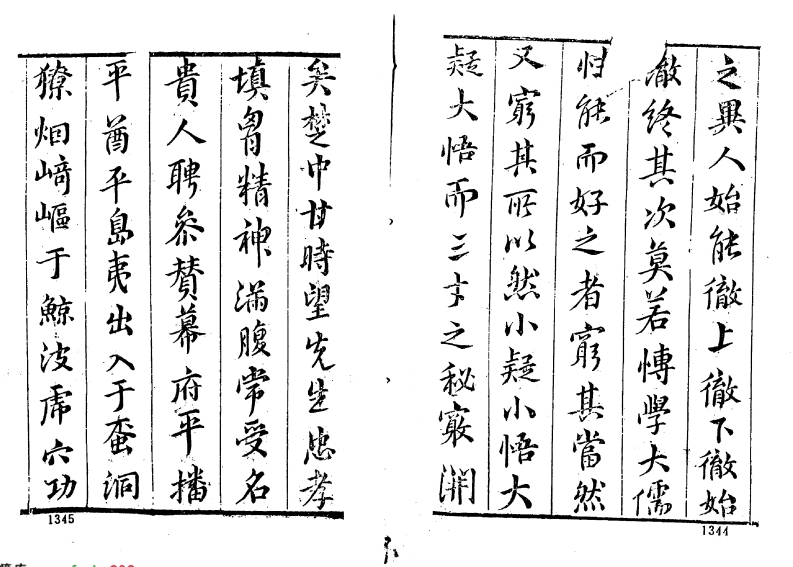 之異人始能徹上徹下徹始
徹終其次莫若博學大儒
歸能而好之者窮其當然
又窮其所以然小疑小悟大
疑大悟而三才之秘竅開
1344
矣楚中甘時望先生忠孝
填胷精神滿腹常受名
貴人聘參贊幕府平播
平酋平島夷出入于蛮洞
獠烟崎嶇于鯨波虎穴功
1345